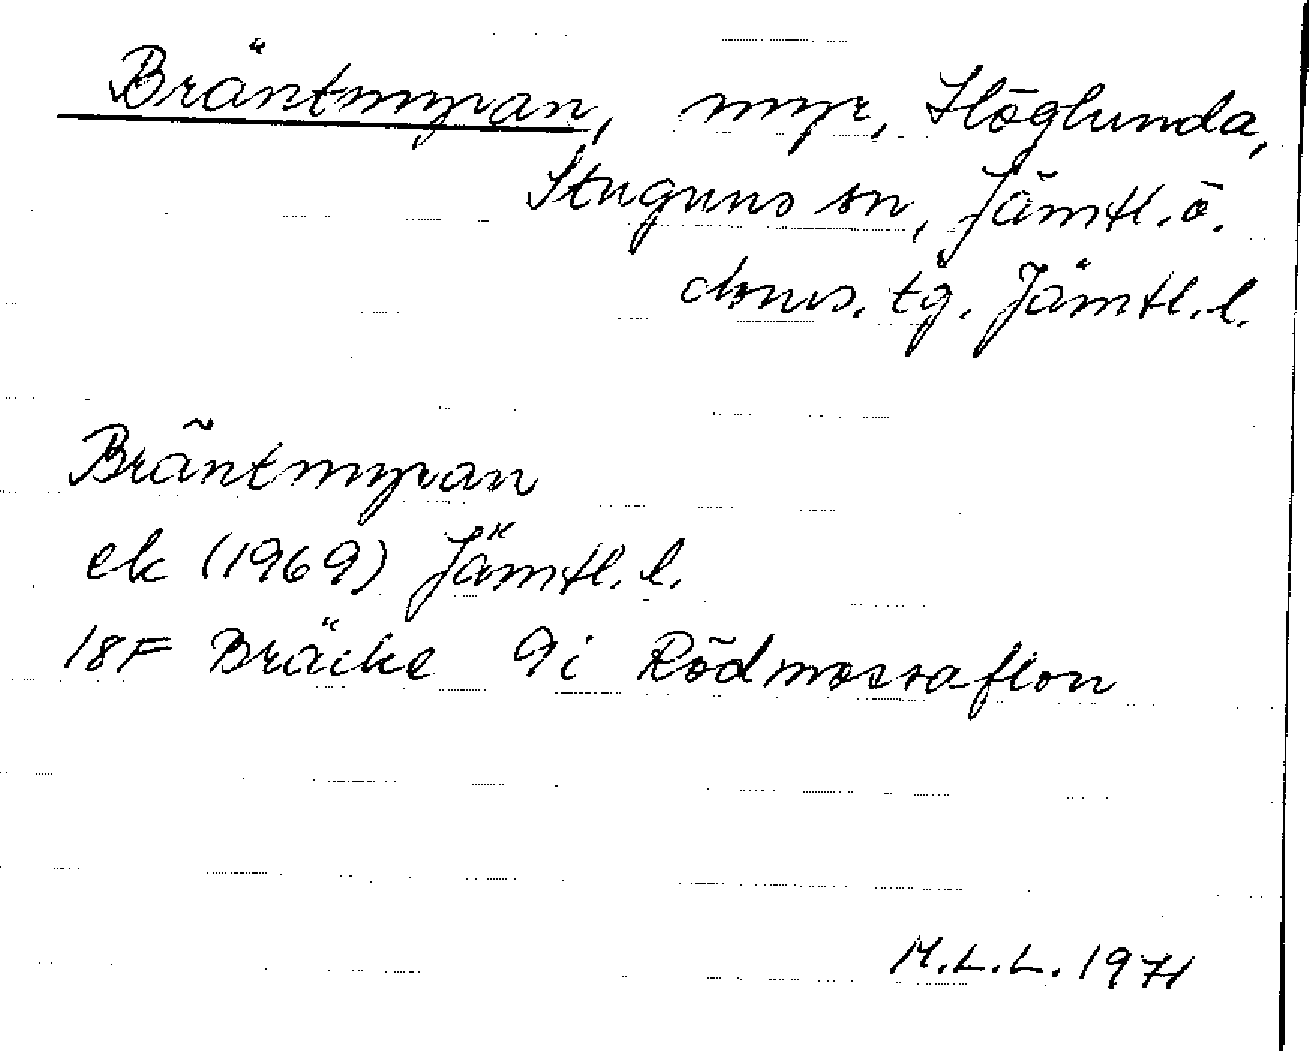 Bräntmyran, myr, Höglunda,
Stuguns sn, Jämtl. ö.
doms. tg. Jämtl. l.
Bräntmyran
ek (1969) Jämtl. l.
18F Bräcke 9i Rödmossaflon
M.L.L. 1971